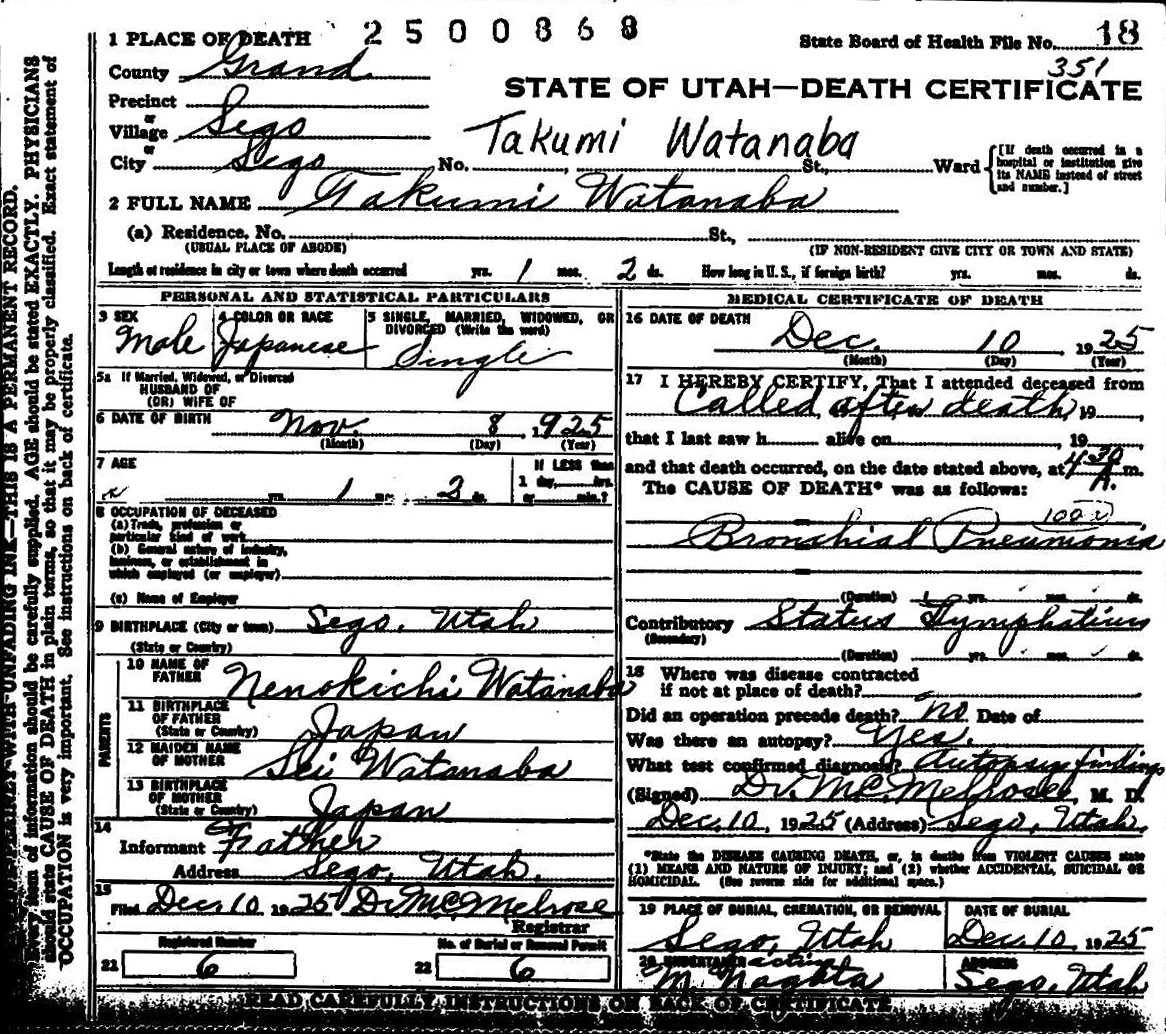 2500868
1 PLACE OF DEATH
State Board of Health File No. 18
351
County Grand
STATE OF UTAH—DEATH CERTIFICATE
Precinct
or
Village Sego
Takumi Watanaba
or
City Sego No. St., Ward
[If death occurred in a hospital or institution give its NAME instead of street and number.]
2 FULL NAME Takumi Watanaba
(a) Residence. No. St.,
(USUAL PLACE OF ABODE) (IF NON-RESIDENT GIVE CITY OR TOWN AND STATE)
Length of residence in city or town where death occurred yrs. 1 mos. 2 ds. How long in U. S., if foreign birth? yrs. mos. ds.
PERSONAL AND STATISTICAL PARTICULARS
3 SEX 4 COLOR OR RACE 5 SINGLE, MARRIED, WIDOWED, OR
DIVORCED (Write the word)
Male Japanese Single
5a If Married, Widowed, or Divorced
HUSBAND OF
(OR) WIFE OF
6 DATE OF BIRTH Nov. 8 1925
(Month) (Day) (Year)
7 AGE If LESS than
1 day, hrs.
yrs. 1 mos. 2 ds. or min.?
8 OCCUPATION OF DECEASED
(a) Trade, profession or
particular kind of work
(b) General nature of industry,
business, or establishment in
which employed (or employer)
(c) Name of Employer
9 BIRTHPLACE (City or town) Sego, Utah
(State or Country)
PARENTS
10 NAME OF
FATHER Nenokichi Watanaba
11 BIRTHPLACE
OF FATHER
(State or Country) Japan
12 MAIDEN NAME
OF MOTHER Sei Watanaba
13 BIRTHPLACE
OF MOTHER
(State or Country) Japan
14
Informant Father
Address Sego, Utah.
15
Filed Dec. 10 1925 Dr MC Melrose
Registrar
Registered Number No. of Burial or Removal Permit
21 6 22 6
MEDICAL CERTIFICATE OF DEATH
16 DATE OF DEATH
Dec. 10 1925
(Month) (Day) (Year)
17 I HEREBY CERTIFY, That I attended deceased from
Called after death, 19
that I last saw h alive on 19
and that death occurred, on the date stated above, at 4 30 A. m.
The CAUSE OF DEATH* was as follows:
100
Bronchial Pneumonia
(Duration) yrs. mos. ds.
Contributory Status Lymphaticus
(Secondary)
(Duration) yrs. mos. ds.
18 Where was disease contracted
if not at place of death?
Did an operation precede death? no Date of
Was there an autopsy? Yes.
What test confirmed diagnosis? Autopsy findings
(Signed) Dr. MC. Melrose, M. D.
Dec. 10, 1925 (Address) Sego, Utah.
*State the DISEASE CAUSING DEATH, or, in deaths from VIOLENT CAUSES state
(1) MEANS AND NATURE OF INJURY; and (2) whether ACCIDENTAL, SUICIDAL OR
HOMICIDAL. (See reverse side for additional space.)
19 PLACE OF BURIAL, CREMATION, OR REMOVAL DATE OF BURIAL
Sego, Utah Dec. 10, 1925
20 UNDERTAKER acting ADDRESS
M. Nagata Sego, Utah
READ CAREFULLY INSTRUCTIONS ON BACK OF CERTIFICATE
WITH UNFADING INK—THIS IS A PERMANENT RECORD.
Every item of information should be carefully supplied. AGE should be stated EXACTLY. PHYSICIANS
should state CAUSE OF DEATH in plain terms, so that it may be properly classified. Exact statement of
OCCUPATION is very important. See instructions on back of certificate.